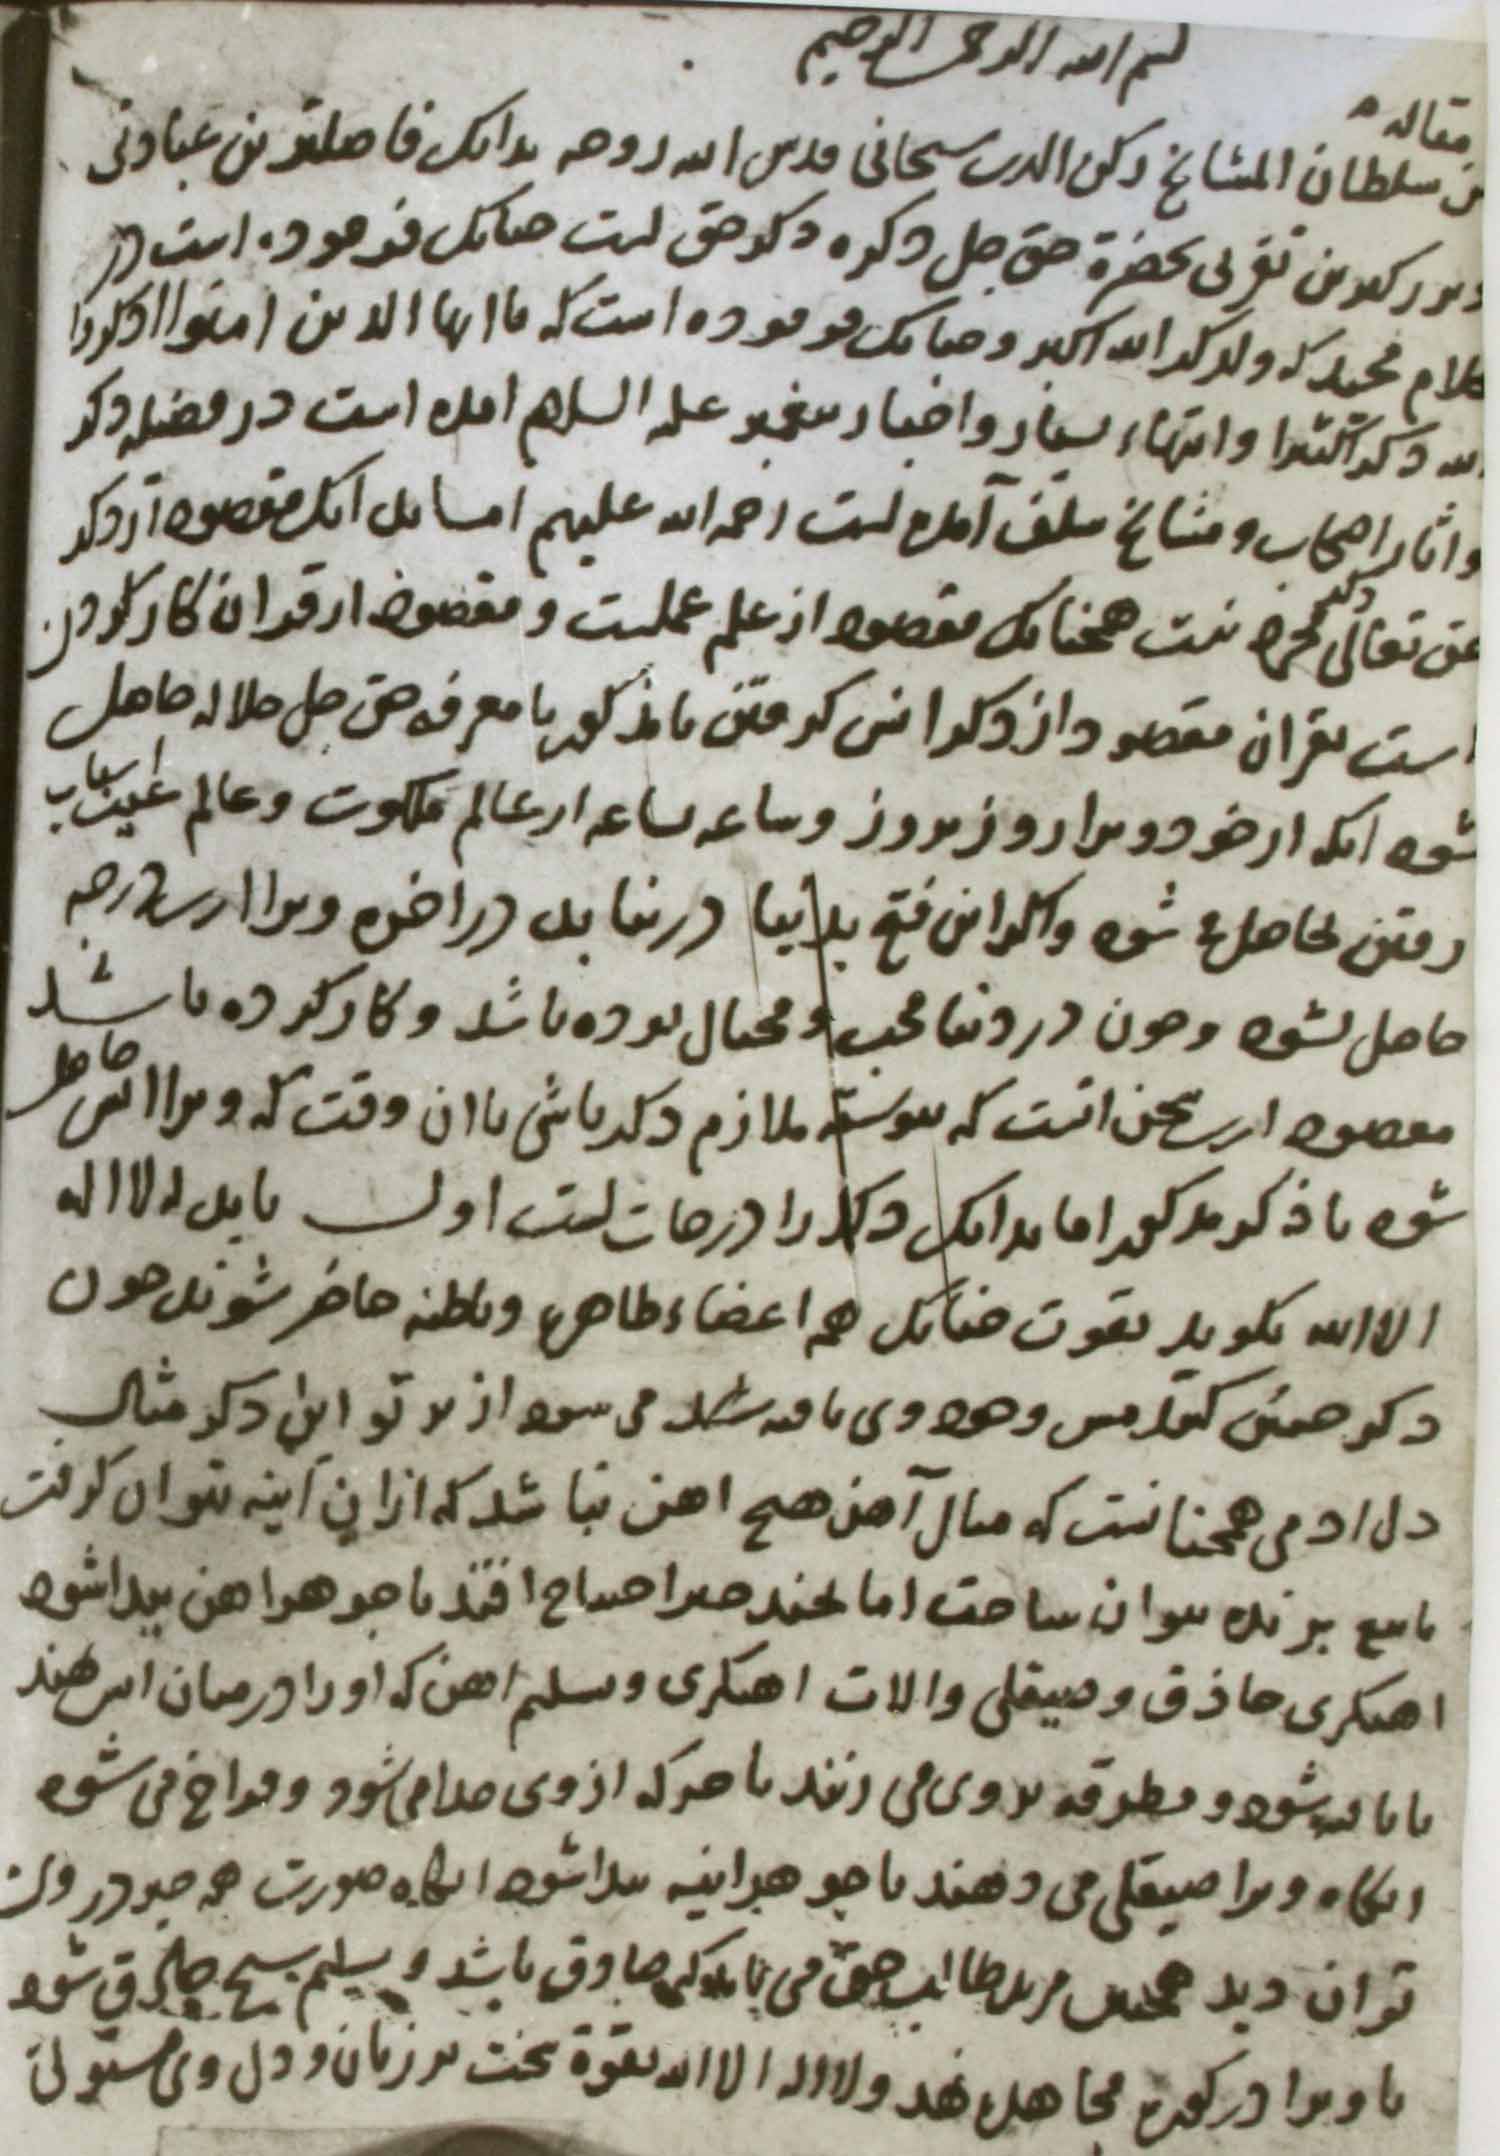 بسم الله الرحمن الرحیم
مقاله
من سلطان المشایخ رکن الدین سنجانی قدس الله روحه بدانک فاضلترین عبادتی
و بزرکترین تقربی بحضرة حق جل ذکره ذکر حق است چنانک فرموده است در
کلام مجید که ولذکر الله اکبر و چنانک فرموده است که یا ایها الذین امنوا اذکروا
الله ذکرا کثیرا و ایتهاء بسیار و اخبار پیغمبر علیه السلام امده است در فضیله ذکر
و اثار اصحاب و مشایخ سلف آمده است رحمه الله علیهم اما بدانک مقصود از ذکر
حق تعالی ذکر مجرد نیست همچنانک مقصود از علم عملست و مقصود از قران کار کردن
است بقران مقصود از ذکر انس کرفتن با مذکور با معرفه حق جل جلاله حاصل
شود انکه از خود ویرا روز بروز و ساعه ساعه از عالم ملکوت و عالم غیب اسباب
رفتن حاصل شود و اکر این فتح بدنیا در نیابد در اخره ویرا این درجه
حاصل شود و چون در دنیا محب و محتال بوده باشد و کار کرده باشد
مقصود ازین سخن انست که پیوسته ملازم ذکر باشی تا ان وقت که ویرا انس حاصل
شود با ذکر مذکور اما بدانک ذکر را درجات است اول باید که لا اله
الا الله بکوید بقوت چنانک همه اعضاء ظاهره و باطنه حاضر شوند چون
ذکر چنین کوید مس وجود وی تافته شد می شود از پرتو این ذکر مثال
دل ادمی همچنانست که مثال آهن هیچ اهن نباشد که ازان آینه نتوان کرفت
یا تیغ برنده نتوان ساخت اما بچند چیز احتیاج افتد تا جوهر اهن پیدا شود
اهنکری حاذق و صیقلی و الات اهنکری و تسلیم اهن که او را در میان اتش نهند
تا تافته شود و مطرقه بر وی می زنند تا هر که از وی جدا می شود و فراخ می شود
انکاه ویرا صیقلی می دهند تا جوهر اینه پیدا شود انکاه صورت همه چیز در وی
توان دید همچنین مرید طالب حق می باید که صادق باشد و تسلیم شیخ حاذق شود
تا ویرا در کوره مجاهده نهد و لا اله الا الله بقوة سخت بر زبان و دل وی مستولی